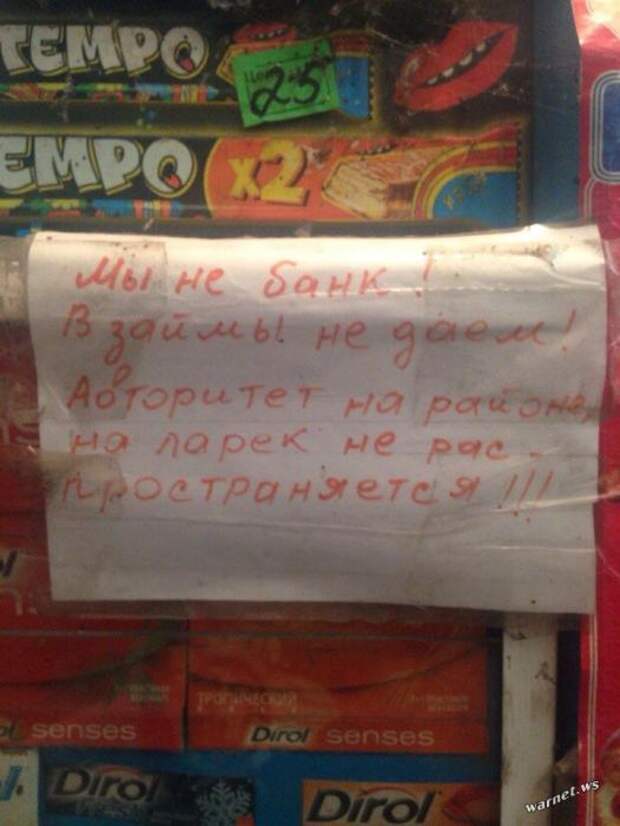 TEMPO
25
EMPO x2
Мы не банк!
В займы не даем!
Авторитет на районе,
на ларек не рас-
пространяется!!!
ТРОПИЧЕСКИЙ
senses
Dirol senses
Dirol
Dirol
warnet.ws